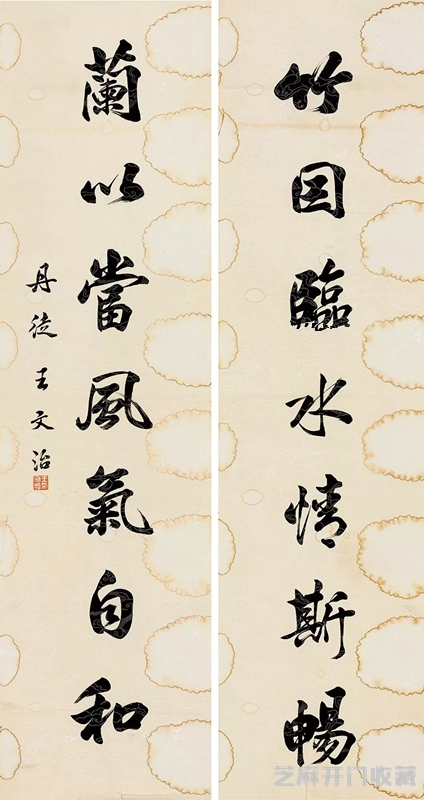 竹因臨水情斯暢
蘭以當風氣自和
丹徒王文治
芝麻开门收藏